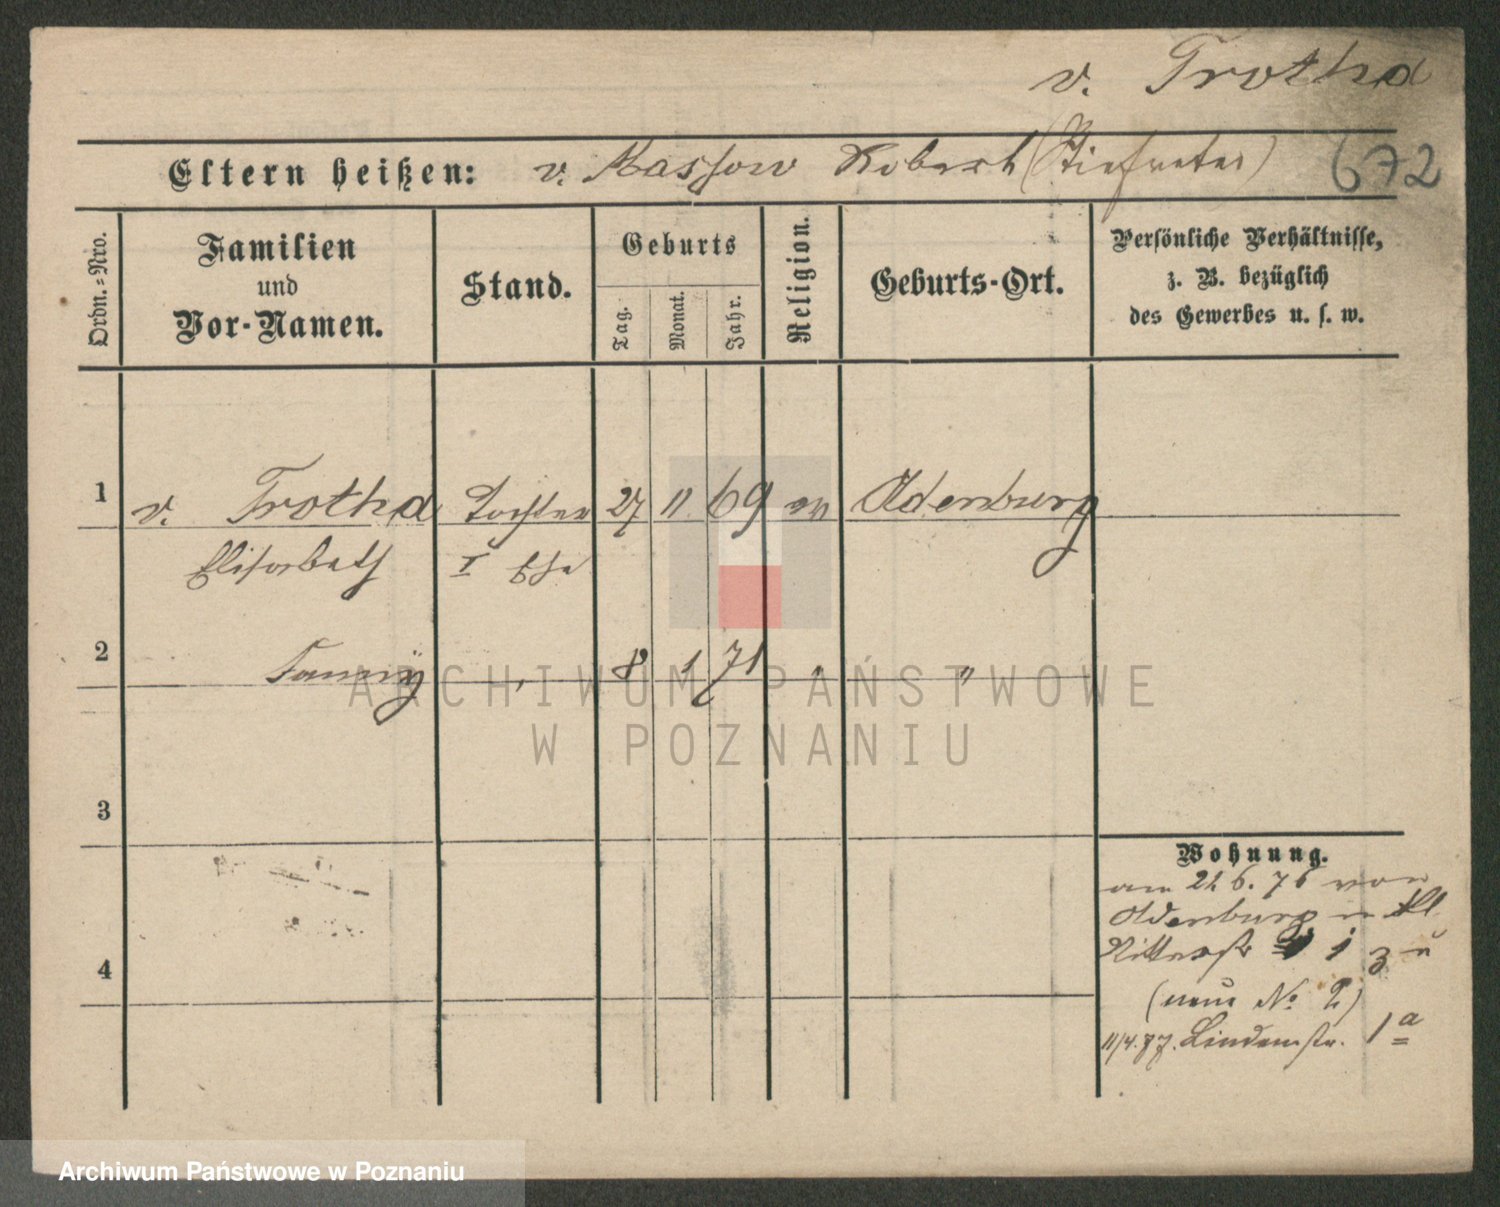 v. Trotha
Eltern heißen: v. Massow Robert (Stiefvater) 672
Ordn.-Nro.
Familien
und
Vor-Namen.
Stand.
Geburts
Tag.
Monat.
Jahr.
Religion.
Geburts-Ort.
Persönliche Verhältnisse,
z. B. bezüglich
des Gewerbes u. s. w.
1 v. Trotha Tochter 27 11 69 ev Oldenburg
Elisabeth I Ehe
2 Fanny " 8 1 71 " "
ARCHIWUM PAŃSTWOWE
W POZNANIU
3
Wohnung.
am 6. 76 von
Oldenburg n
Ritterstr 3
4
(neue No 2)
11/4.77. Lindenstr. 1a
Archiwum Państwowe w Poznaniu